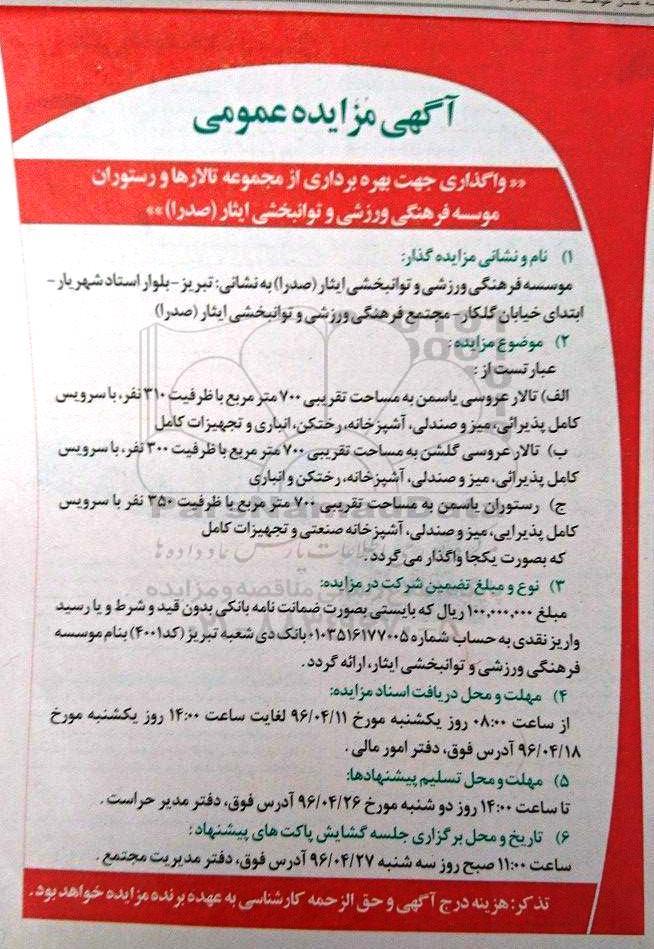 آگهی مزایده عمومی
«« واگذاری جهت بهره برداری از مجموعه تالارها و رستوران
موسسه فرهنگی ورزشی و توانبخشی ایثار (صدرا) »»
۱) نام و نشانی مزایده گذار:
موسسه فرهنگی ورزشی و توانبخشی ایثار (صدرا) به نشانی: تبریز - بلوار استاد شهریار -
ابتدای خیابان گلکار - مجتمع فرهنگی ورزشی و توانبخشی ایثار (صدرا)
۲) موضوع مزایده:
عبارتست از :
الف) تالار عروسی یاسمن به مساحت تقریبی ۷۰۰ متر مربع با ظرفیت ۳۱۰ نفر، با سرویس
کامل پذیرائی، میز و صندلی، آشپزخانه، رختکن، انباری و تجهیزات کامل
ب) تالار عروسی گلشن به مساحت تقریبی ۷۰۰ متر مربع با ظرفیت ۳۰۰ نفر، با سرویس
کامل پذیرائی، میز و صندلی، آشپزخانه، رختکن و انباری
ج) رستوران یاسمن به مساحت تقریبی ۷۰۰ متر مربع با ظرفیت ۳۵۰ نفر با سرویس
کامل پذیرایی، میز و صندلی، آشپزخانه صنعتی و تجهیزات کامل
که بصورت یکجا واگذار می گردد .
۳) نوع و مبلغ تضمین شرکت در مزایده:
مبلغ ۱۰۰,۰۰۰,۰۰۰ ریال که بایستی بصورت ضمانت نامه بانکی بدون قید و شرط و یا رسید
واریز نقدی به حساب شماره ۰۱۰۳۵۱۶۱۷۷۰۰۵ بانک دی شعبه تبریز (کد ۴۰۰۱) بنام موسسه
فرهنگی ورزشی و توانبخشی ایثار، ارائه گردد .
۴) مهلت و محل دریافت اسناد مزایده:
از ساعت ۰۸:۰۰ روز یکشنبه مورخ ۹۶/۰۴/۱۱ لغایت ساعت ۱۴:۰۰ روز یکشنبه مورخ
۹۶/۰۴/۱۸ آدرس فوق، دفتر امور مالی .
۵) مهلت و محل تسلیم پیشنهادها:
تا ساعت ۱۴:۰۰ روز دو شنبه مورخ ۹۶/۰۴/۲۶ آدرس فوق، دفتر مدیر حراست .
۶) تاریخ و محل برگزاری جلسه گشایش پاکت های پیشنهاد :
ساعت ۱۱:۰۰ صبح روز سه شنبه ۹۶/۰۴/۲۷ آدرس فوق، دفتر مدیریت مجتمع .
تذکر: هزینه درج آگهی و حق الزحمه کارشناسی به عهده برنده مزایده خواهد بود .